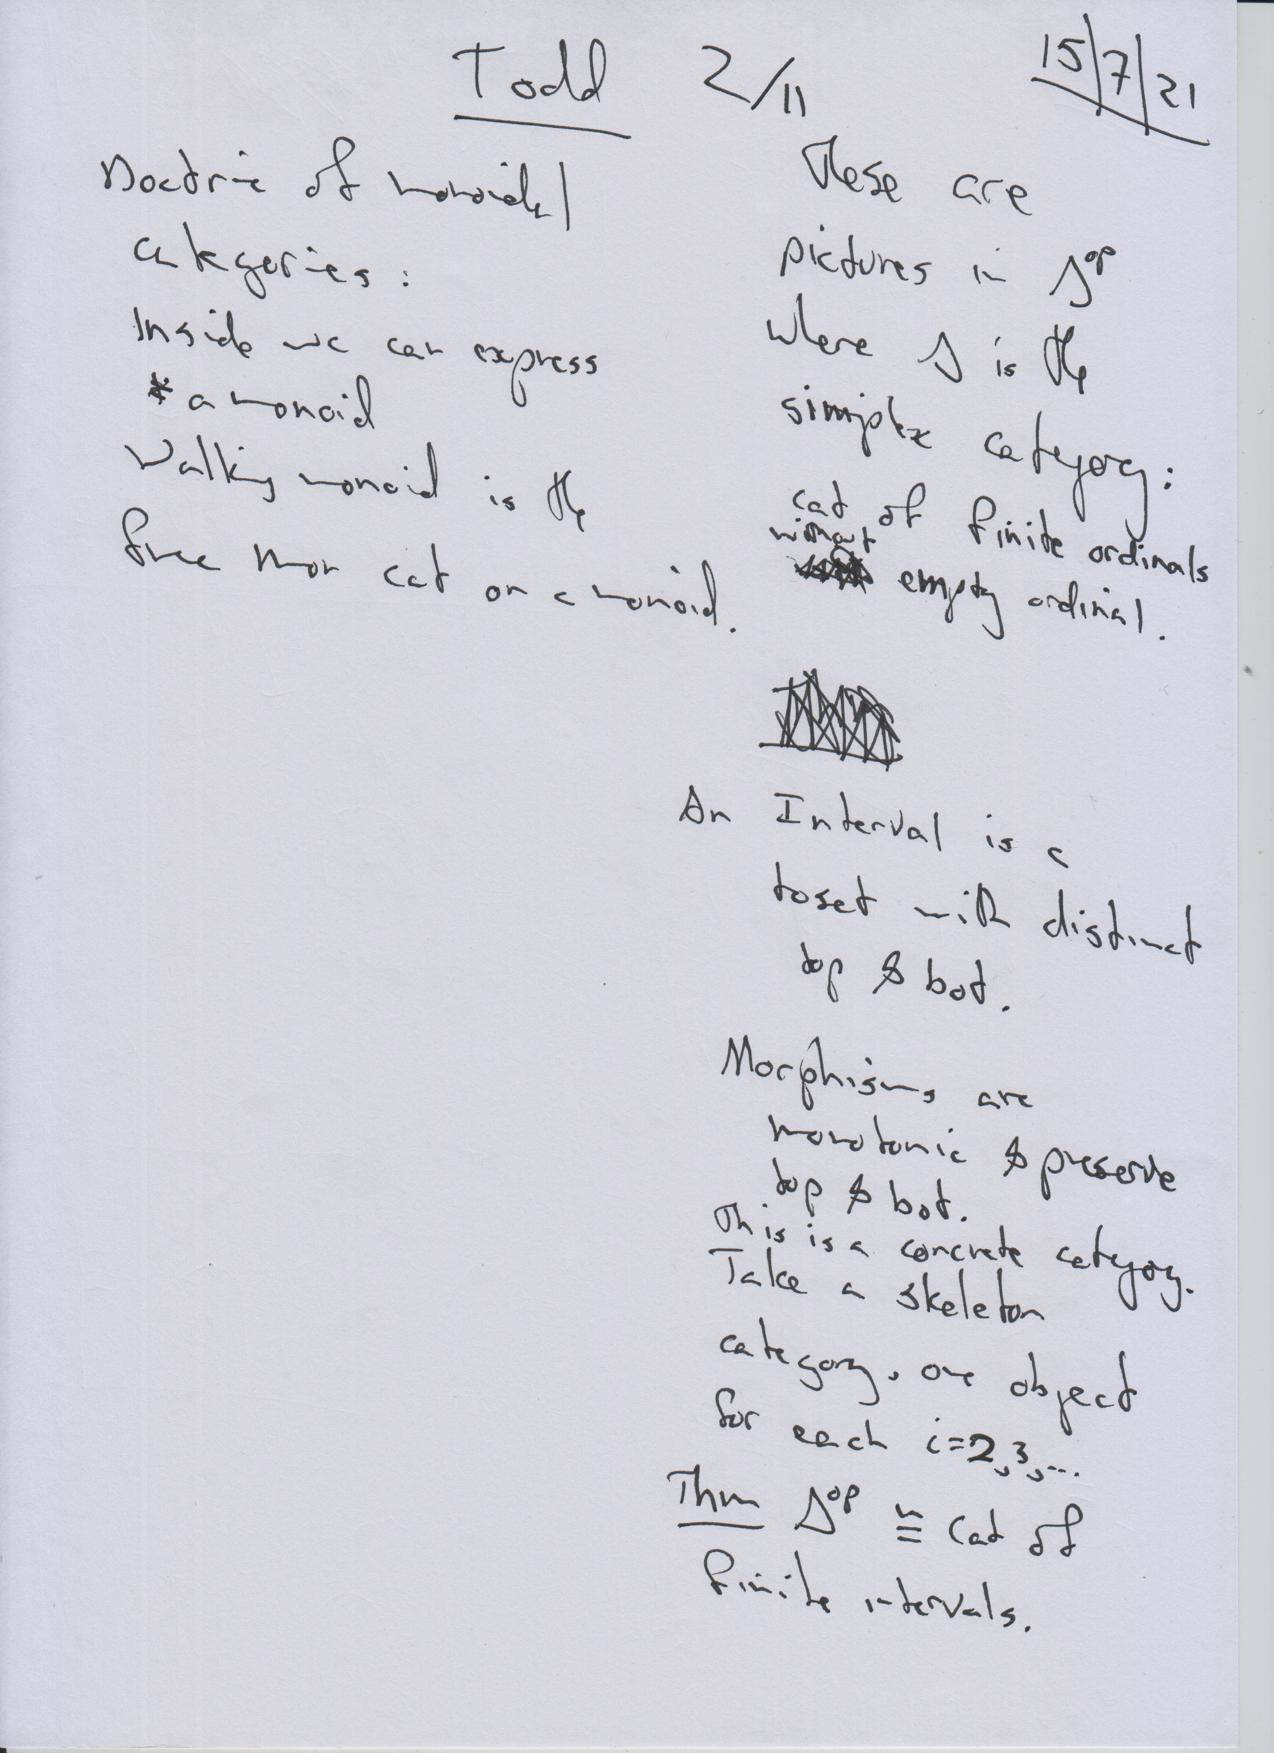 Todd 2/11 15/7/21
Doctrine of monoidal
categories:
Inside we can express
* a monoid
Walking monoid is the
free mon cat on a monoid.
These are
pictures in Δ^op
where Δ is the
simplex category:
cat of finite ordinals
without
empty ordinal.
An Interval is a
toset with distinct
top & bot.
Morphisms are
monotonic & preserve
top & bot.
This is a concrete category.
Take a skeleton
category, one object
for each i=2,3,...
Thm Δ^op ≅ cat of
finite intervals.